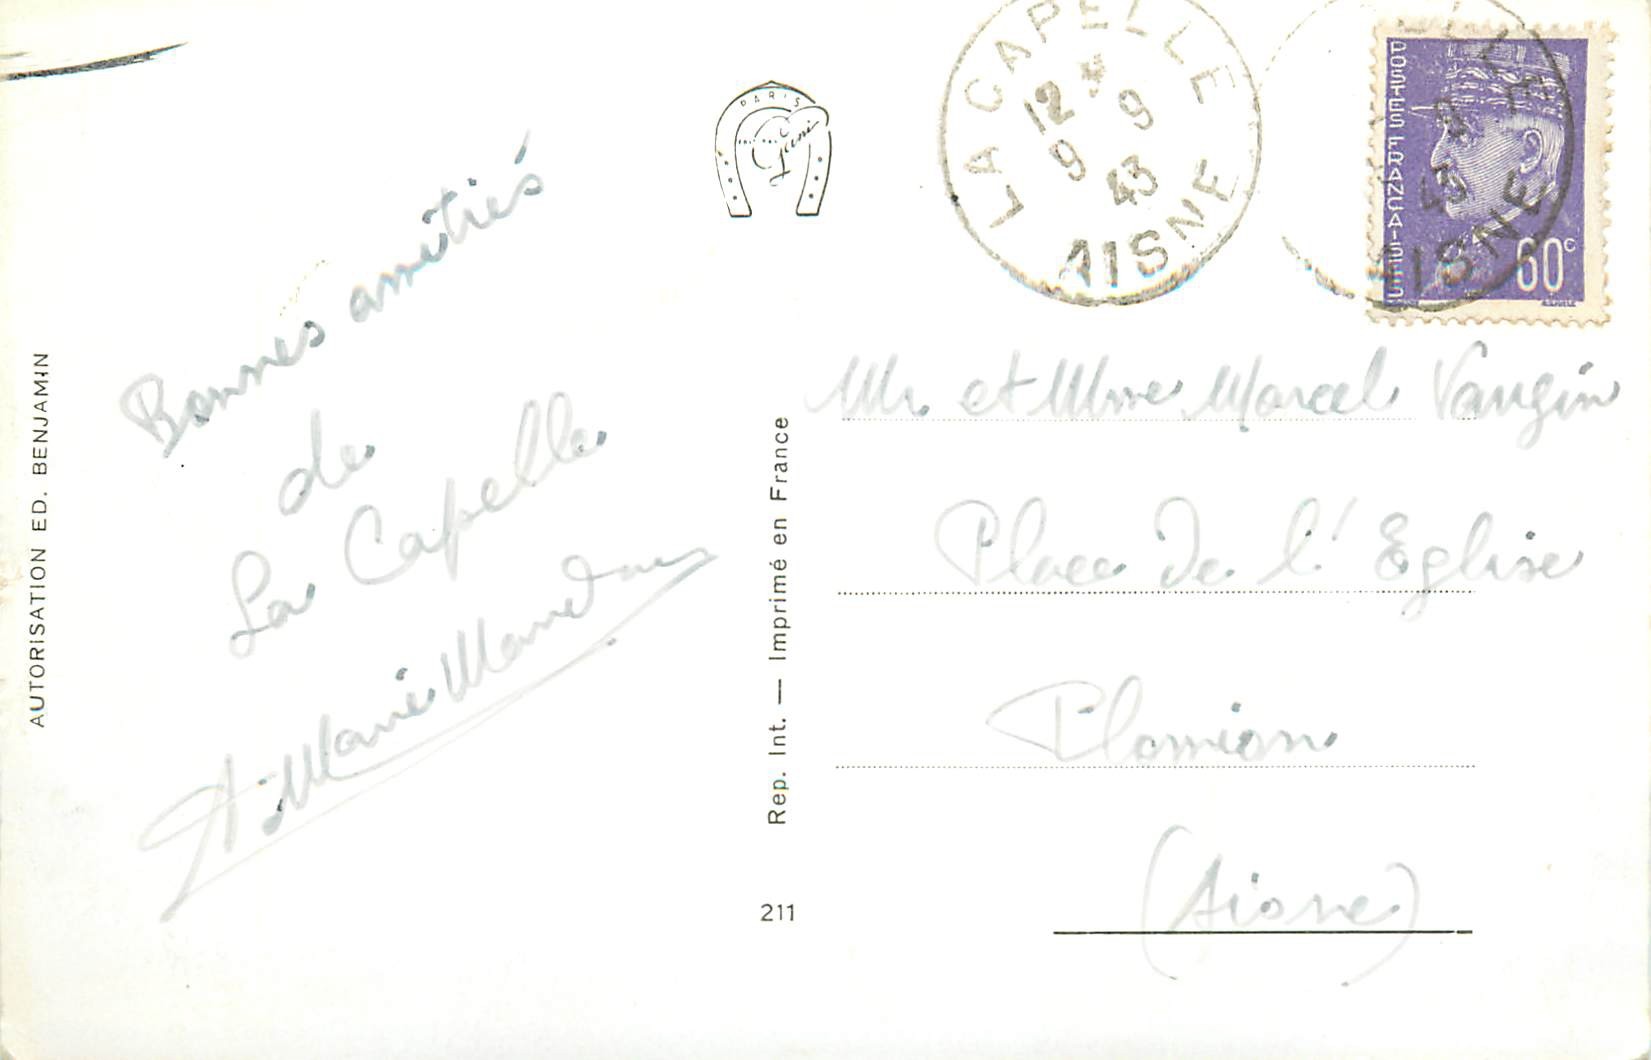 AUTORISATION ED. BENJAMIN
Bonnes amitiés
de
La Capelle
A Marie
PARIS
Rep. Int. — Imprimé en France
211
LA CAPELLE
12 *
9 9
43
AISNE
POSTES FRANCAISES
60c
43
AISNE
Mr et Mme Marcel Vaugin
Place De l'Eglise
Plomion
(Aisne)